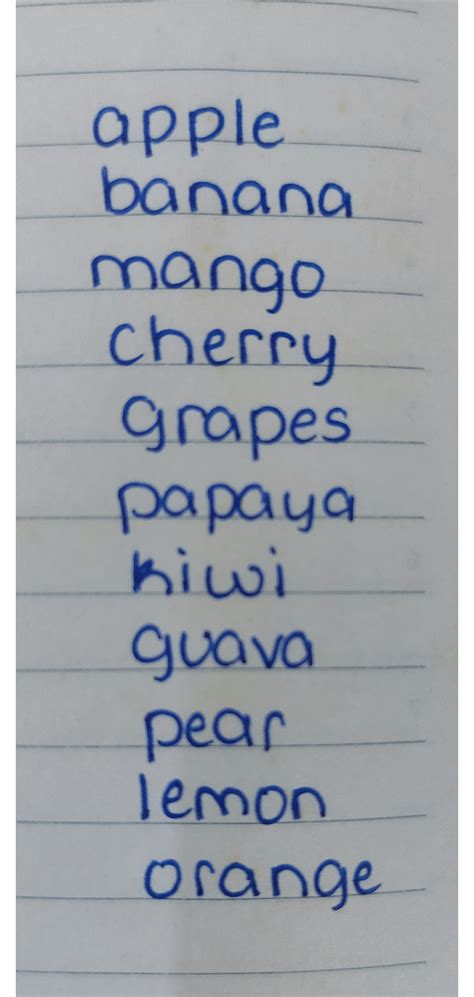 apple
banana
mango
cherry
grapes
papaya
kiwi
guava
pear
lemon
orange